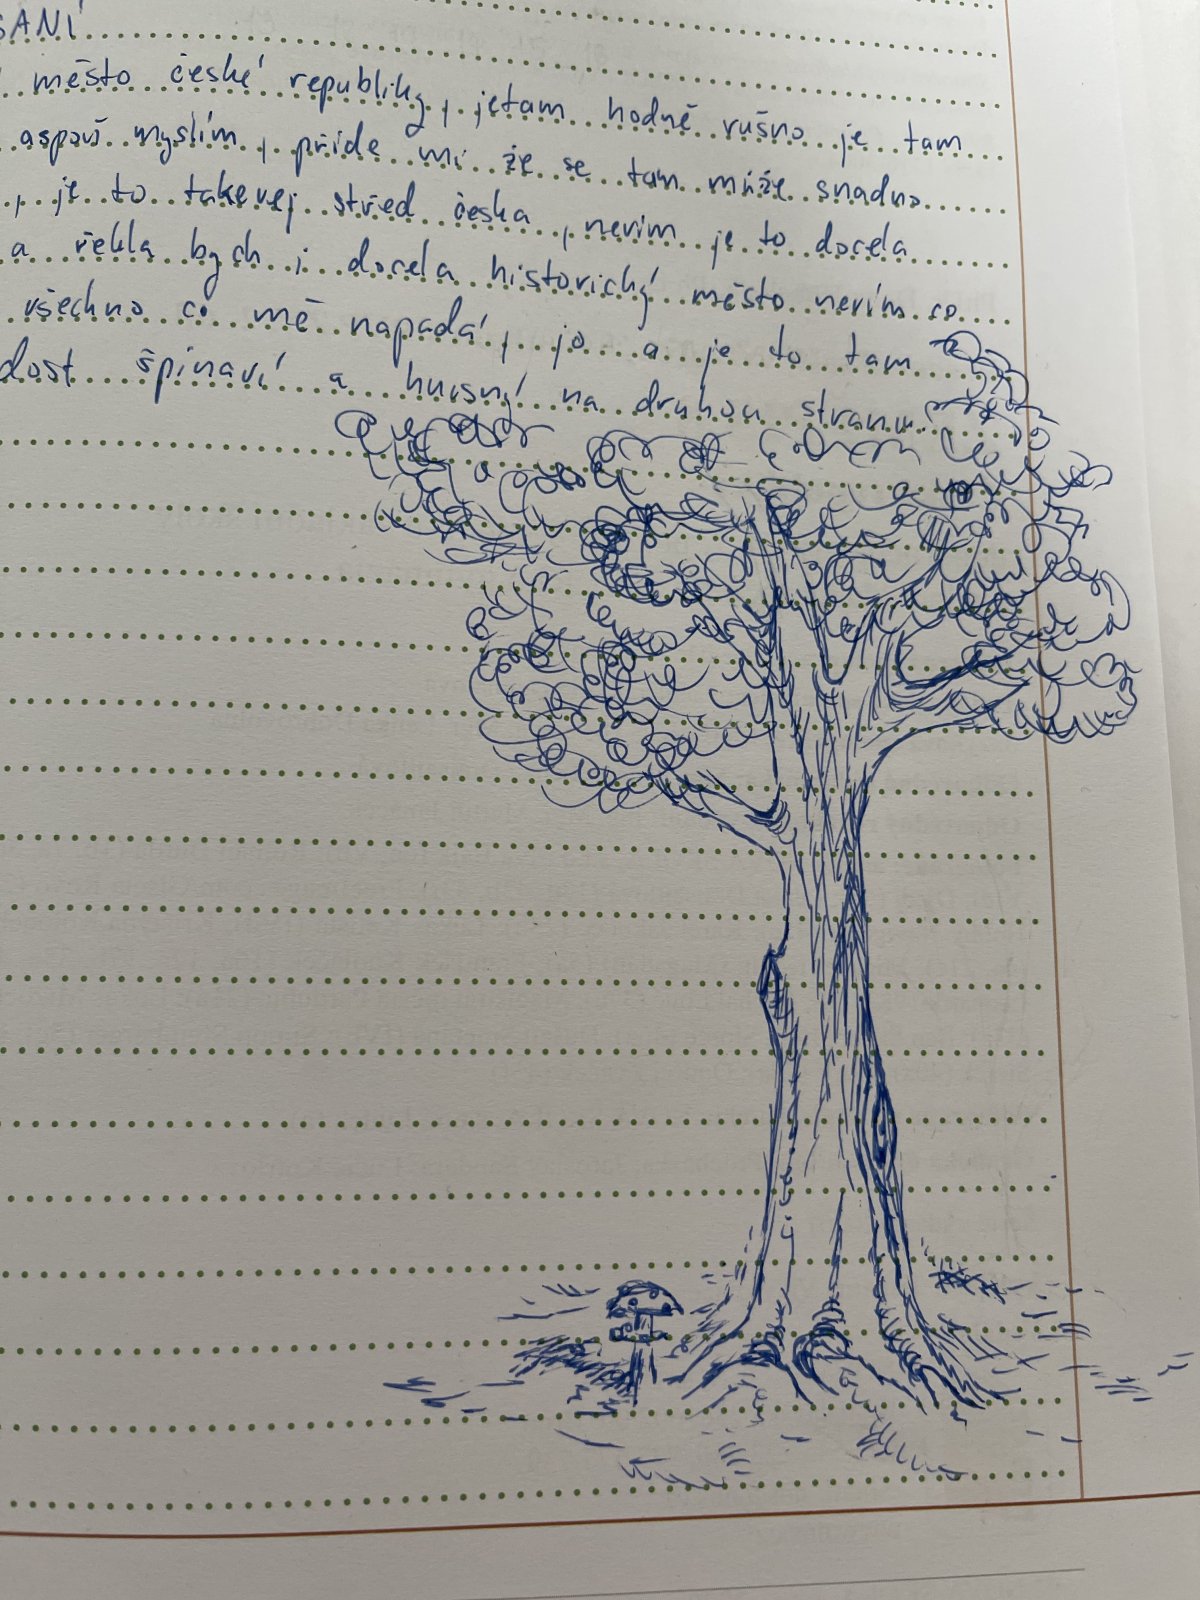 SANÍ
město české republiky, jetam hodně rušno je tam
aspoň myslím, příde mi že se tam může snadno
, je to takovej střed česka, nevim je to docela
a řekla bych i docela historický město nevím co
všechno co mě napadá, jo a je to tam
dost špinaví a hnusný na druhou stranu.